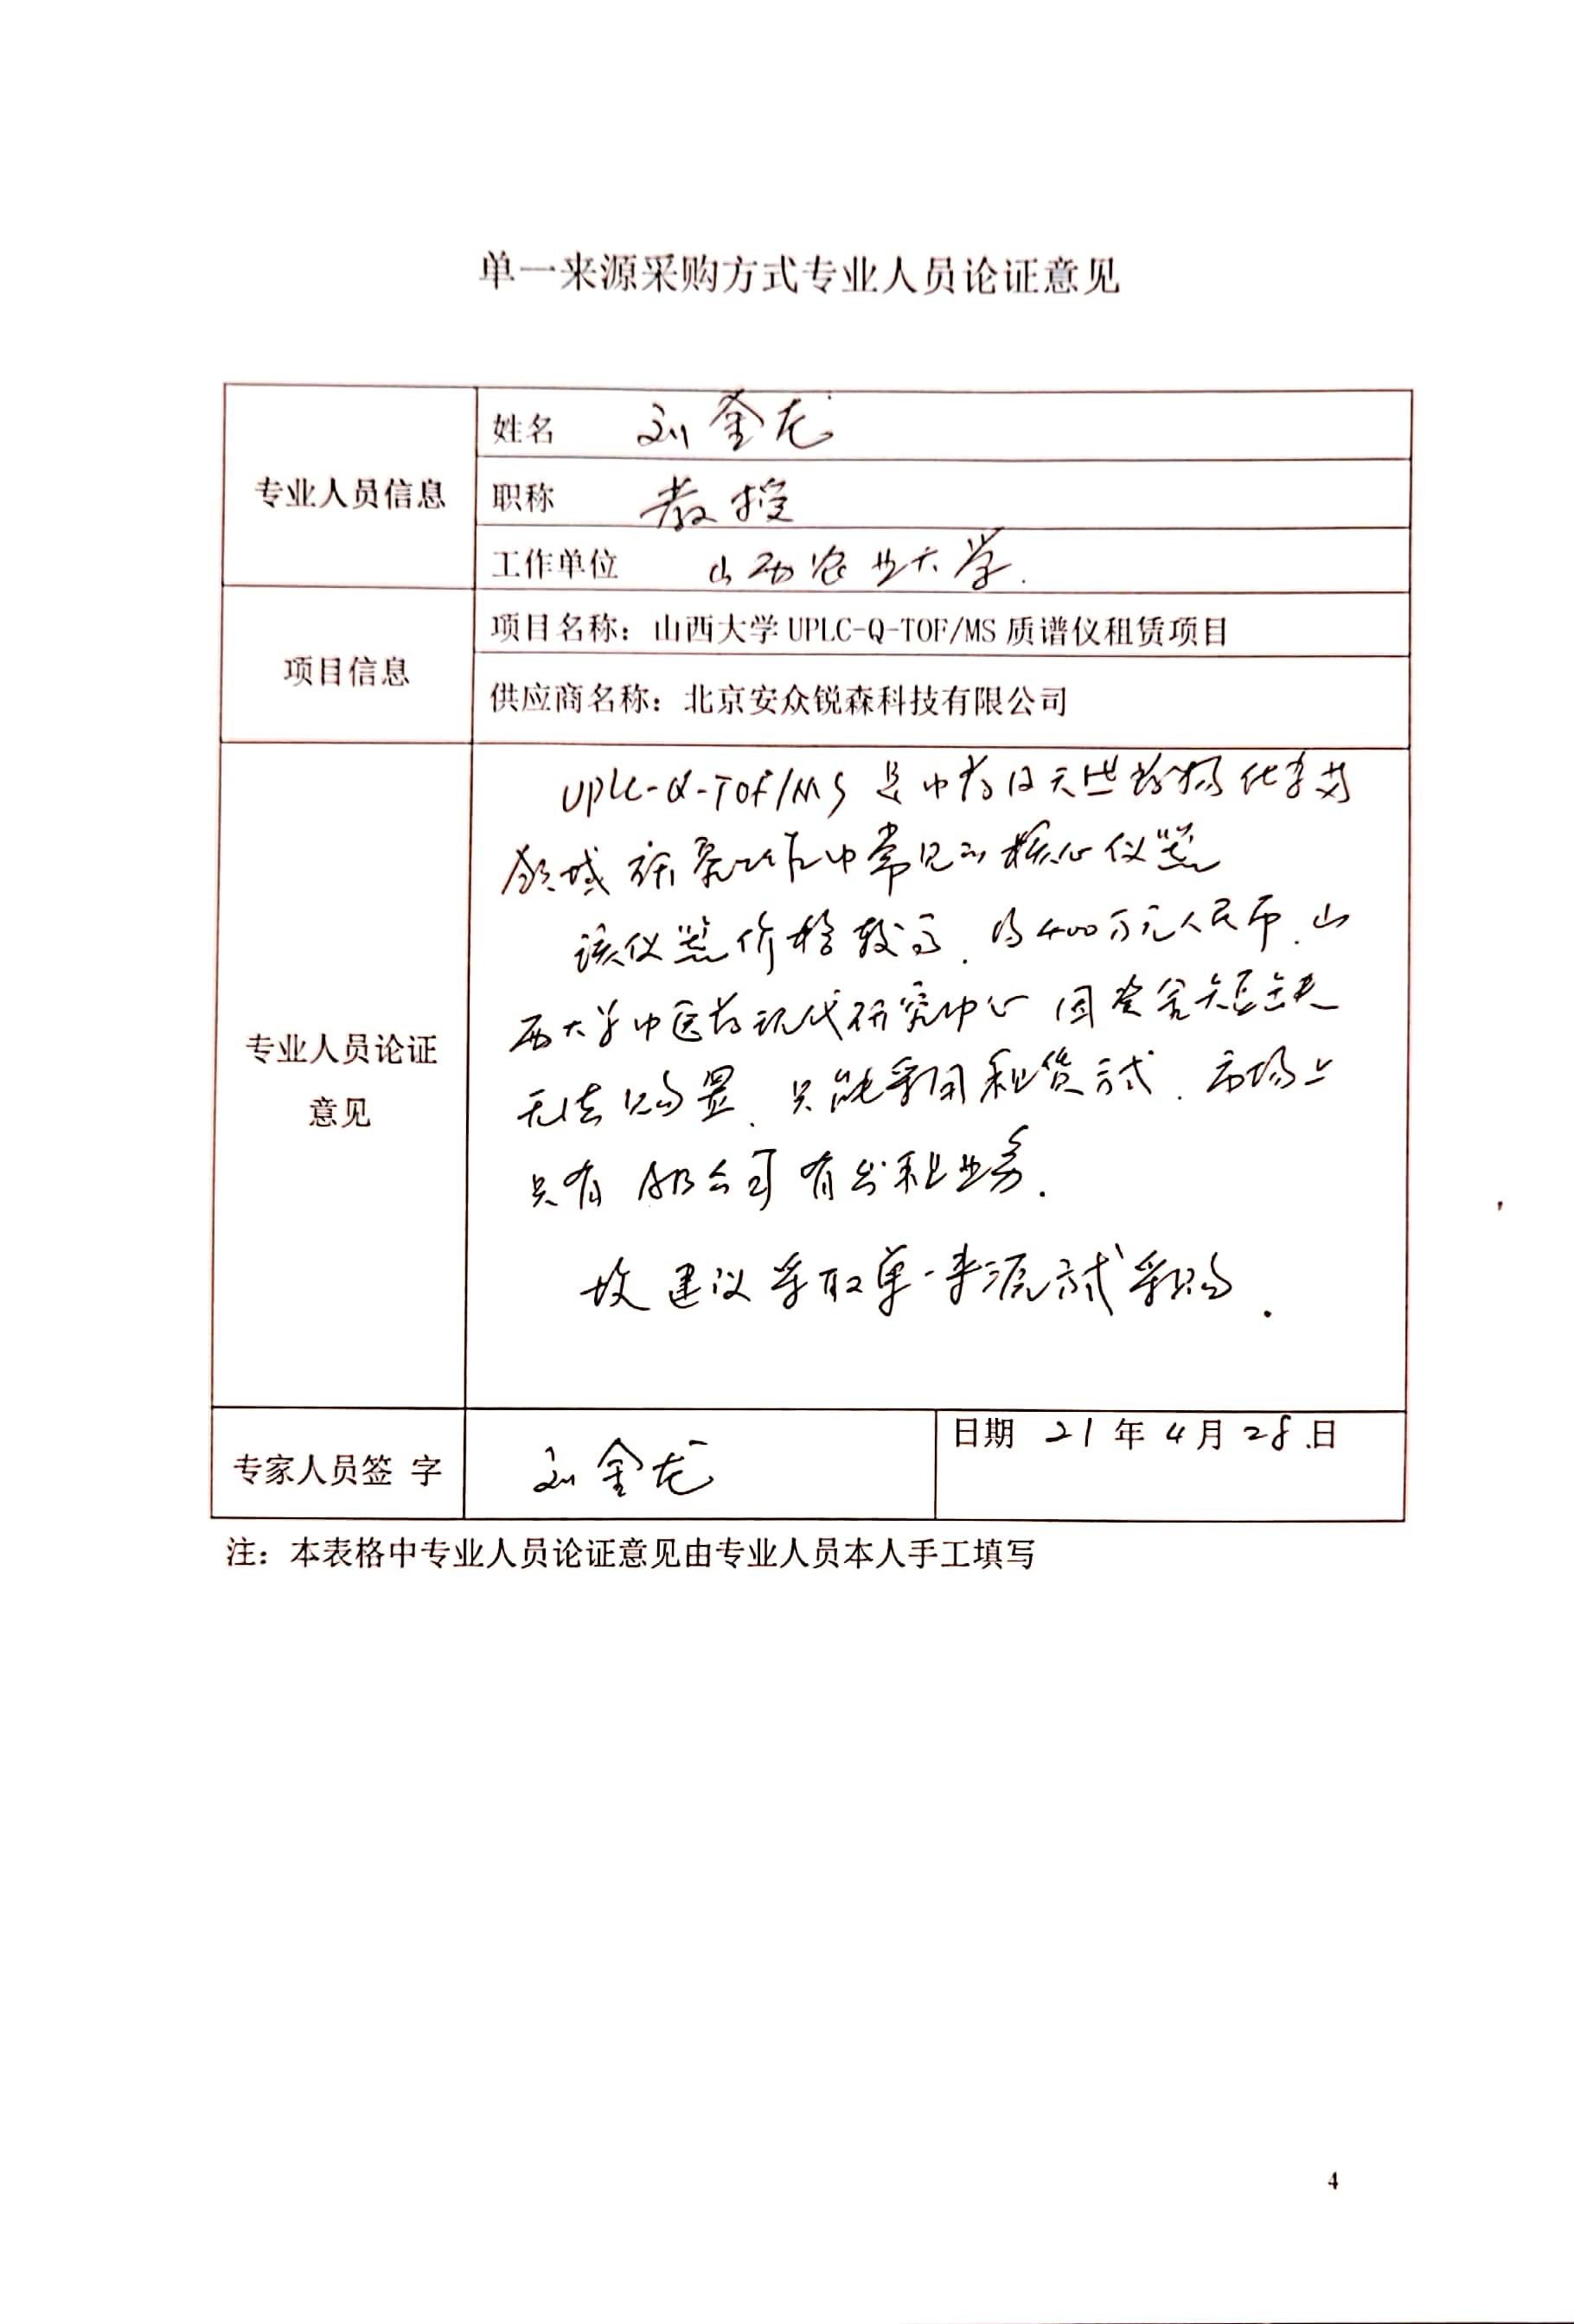 单一来源采购方式专业人员论证意见
专业人员信息
姓名 刘金龙
职称 教授
工作单位 山西农业大学.
项目信息
项目名称：山西大学 UPLC-Q-TOF/MS 质谱仪租赁项目
供应商名称：北京安众锐森科技有限公司
专业人员论证
意见
UPLC-Q-TOF/MS 是中药及天然药物化学等
领域 研究工作中常见的核心仪器
该仪器价格较高，约400万元人民币，山
西大学中医药现代研究中心 因资金短缺
无法购置，只能采用租赁方式．市场上
只有 AB公司有出租业务．
故建议采取单一来源方式采购．
专家人员签 字
刘金龙
日期 21 年 4 月 28 日
注：本表格中专业人员论证意见由专业人员本人手工填写
4